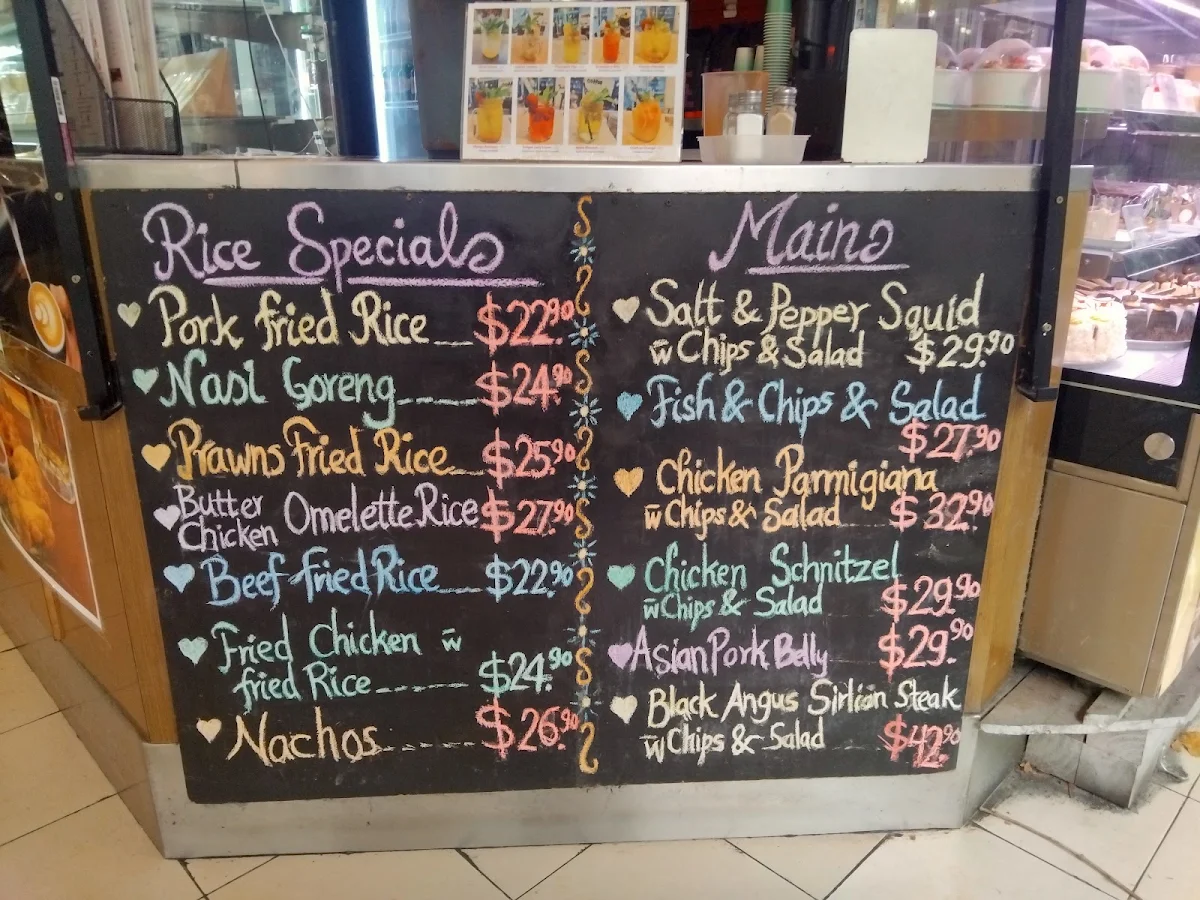 Rice Specials
Pork fried Rice $22.90
Nasi Goreng $24.90
Prawns Fried Rice $25.90
Butter
Chicken Omelette Rice $27.90
Beef fried Rice $22.90
Fried Chicken w̄
fried Rice $24.90
Nachos $26.90
Mains
Salt & Pepper Squid
w̄ Chips & Salad $29.90
Fish & Chips & Salad
$27.90
Chicken Parmigiana
w̄ Chips & Salad $32.90
Chicken Schnitzel
w̄ Chips & Salad $29.90
Asian Pork Belly $29.90
Black Angus Sirlion Steak
w̄ Chips & Salad $42.90